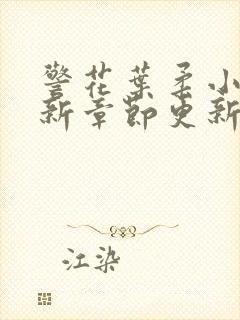 警花葉柔小
新章節更新
江染